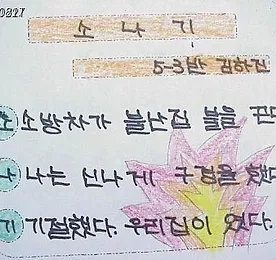 소 나 기
5-3반 김하진
소 소방차가 불난집 불을 끈
나 나는 신나게 구경을 했다
기 기절했다. 우리집이 였다.